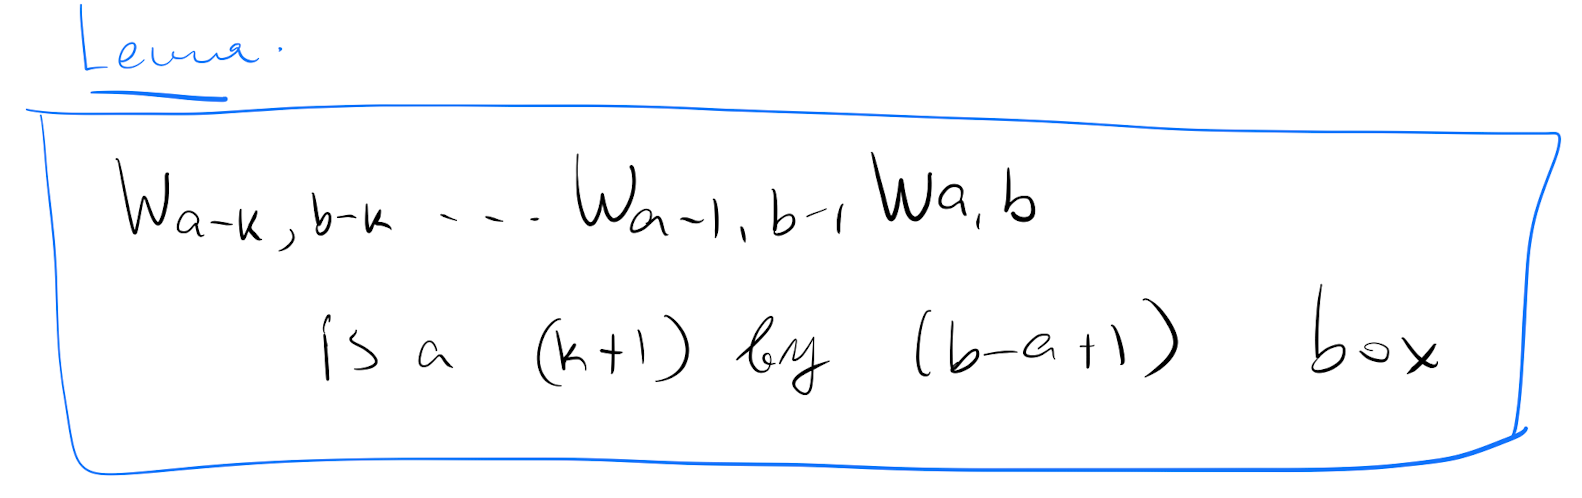 Lemma.
Wa-k, b-k ---. Wa-1, b-1 Wa, b
is a (k+1) by (b-a+1) box